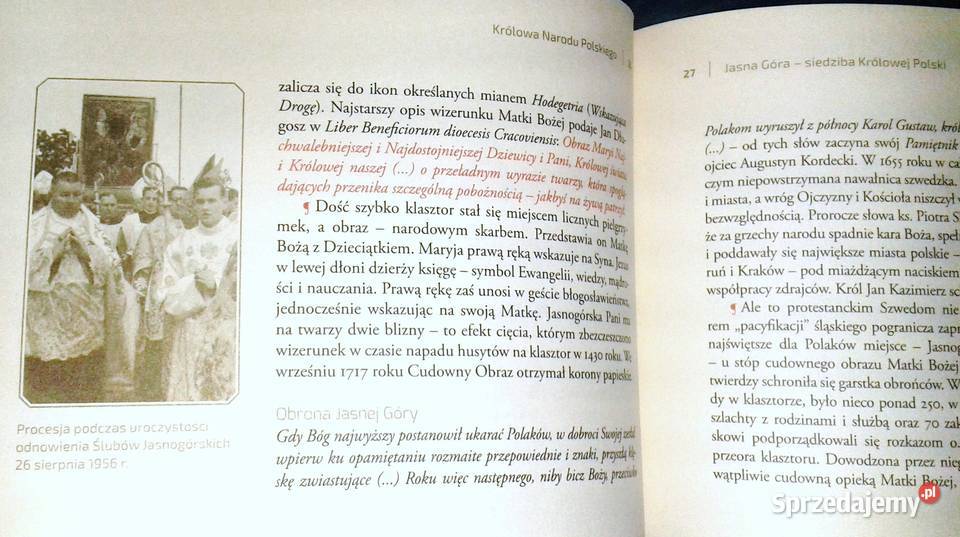 Królowa Narodu Polskiego
zalicza się do ikon określanych mianem Hodegetria (Wskazująca
Drogę). Najstarszy opis wizerunku Matki Bożej podaje Jan Dłu-
gosz w Liber Beneficiorum dioecesis Cracoviensis: Obraz Maryi Naj-
chwalebniejszej i Najdostojniejszej Dziewicy i Pani, Królowej świata
i Królowej naszej (...) o przeładnym wyrazie twarzy, która spoglą-
dających przenika szczególną pobożnością – jakbyś na żywą patrzył.
¶ Dość szybko klasztor stał się miejscem licznych pielgrzy-
mek, a obraz – narodowym skarbem. Przedstawia on Matkę
Bożą z Dzieciątkiem. Maryja prawą ręką wskazuje na Syna. Jezus
w lewej dłoni dzierży księgę – symbol Ewangelii, wiedzy, mądro-
ści i nauczania. Prawą rękę zaś unosi w geście błogosławieństwa,
jednocześnie wskazując na swoją Matkę. Jasnogórska Pani ma
na twarzy dwie blizny – to efekt cięcia, którym zbezczeszczono
wizerunek w czasie napadu husytów na klasztor w 1430 roku. We
wrześniu 1717 roku Cudowny Obraz otrzymał korony papieskie.
Procesja podczas uroczystości
odnowienia Ślubów Jasnogórskich
26 sierpnia 1956 r.
Obrona Jasnej Góry
Gdy Bóg najwyższy postanowił ukarać Polaków, w dobroci Swojej zesłał
wpierw ku opamiętaniu rozmaite przepowiednie i znaki, przyszłą klę-
skę zwiastujące (...) Roku więc następnego, niby bicz Boży, przeciwko
27 | Jasna Góra – siedziba Królowej Polski
Polakom wyruszył z północy Karol Gustaw, król
(...) – od tych słów zaczyna swój Pamiętnik
ojciec Augustyn Kordecki. W 1655 roku w ca
czym niepowstrzymana nawałnica szwedzka.
i miasta, a wróg Ojczyzny i Kościoła niszczył w
bezwzględnością. Prorocze słowa ks. Piotra S
że za grzechy narodu spadnie kara Boża, speł
i poddawały się największe miasta polskie –
ruń i Kraków – pod miażdżącym naciskiem
współpracy zdrajców. Król Jan Kazimierz sc
¶ Ale to protestanckim Szwedom nie
rem „pacyfikacji” śląskiego pogranicza zapr
najświętsze dla Polaków miejsce – Jasnog
– u stóp cudownego obrazu Matki Bożej
twierdzy schroniła się garstka obrońców. W
dy w klasztorze, było nieco ponad 250, w
szlachty z rodzinami i służbą oraz 70 zak
skowi podporządkowali się rozkazom o.
przeora klasztoru. Dowodzona przez nieg
wątpliwie cudowną opieką Matki Bożej,
Sprzedajemy.pl